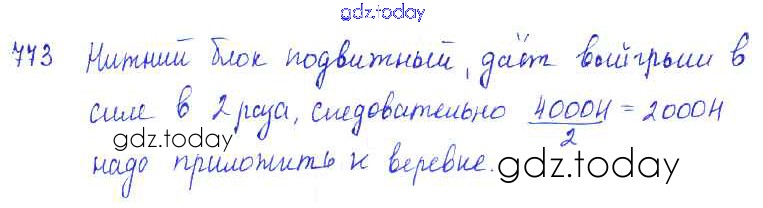 gdz.today
773 Нижний блок подвижный, даёт выигрыш в
силе в 2 раза, следовательно 4000Н/2 = 2000Н
gdz.today
надо приложить к веревке.
gdz.today